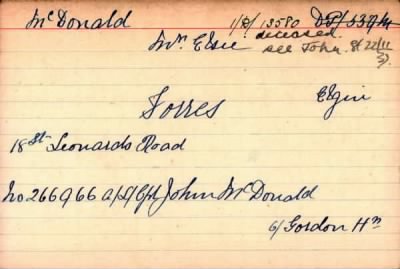 McDonald 1/D/ 13580
Mrs Elsie deceased.
see John.
Forres Elgin
18 St Leonards Road
No 266966 a/L/Cpl John McDonald
6/ Gordon Hrs